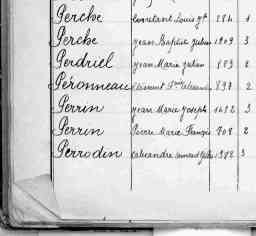 Perche Constant Louis 184 1
Perche Jean Baptiste Julien 1909 3
Perdriel Jean Marie Julien 193 2
Péronneau Clément 898 2
Perrin Jean Marie Joseph 1492 3
Perrin Pierre Marie François 708 2
Perrodin Alexandre 1982 3